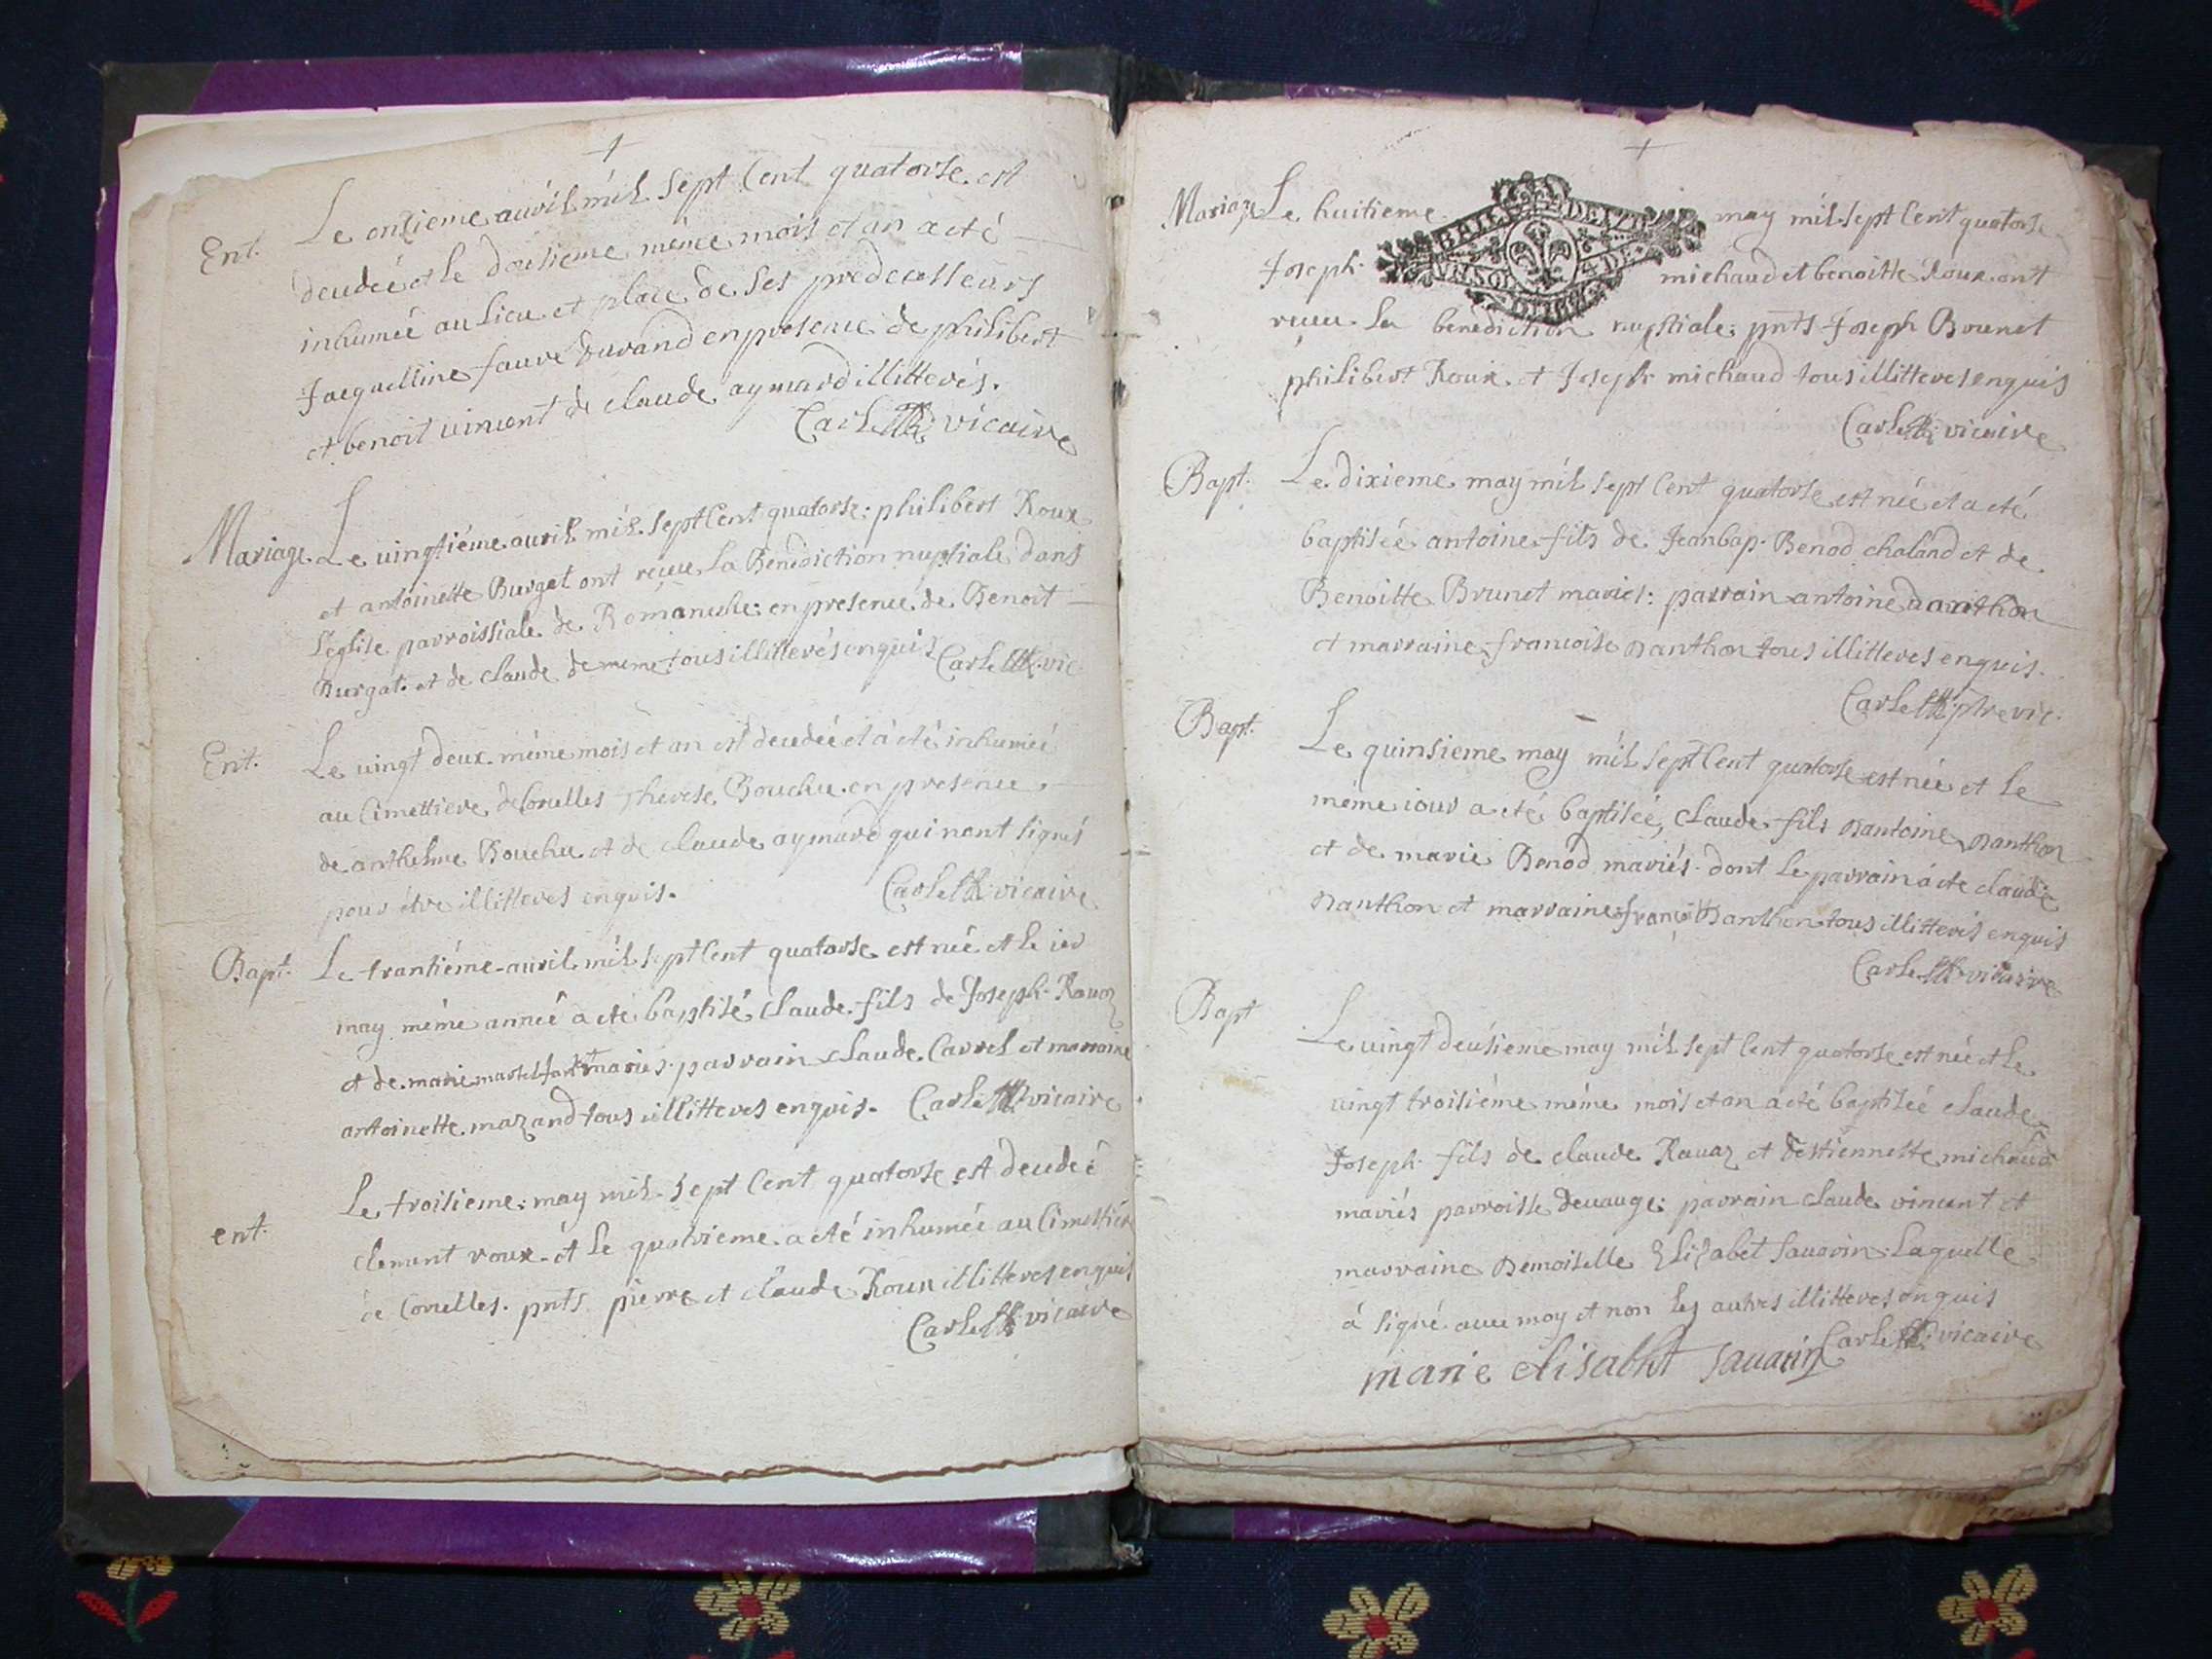 Ent. Le onsieme auvril mil sept Cent quatorse est
decedeé et le dousieme méme mois et an a eté
inhumeé au Lieu et place de Ses predecesseurs
Jacquelline fauvre Durand en presence de philibert
et benoit vincent de claude aymard illitterés.
Carle vicaire
Mariage. Le vingtiéme auvril mil sept Cent quatorse: philibert Roux
et antoinette Burgat ont reçeu La Benediction nuptiale dans
l'eglise parroissiale de Romaneche: en presence de Benoit
Burgat. et de claude de meme tous illitterés enquis Carle vic.
Ent. Le vingt deux méme mois et an est decedeé et à eté inhumeé
au Cimettiere de Corcelles Therese Bouchu en presence
de anthelme Bouchu et de claude aymard qui n'ont signés
pour étre illitteres enquis.
Carle vicaire
Bapt. Le trantiéme auvril mil sept Cent quatorse est née et le ier
may méme anneé a eté baptisé Claude fils de Joseph Ravaz
et de marie martel mariés. parrain claude Carrel et marraine
antoinette mazand tous illitteres enquis. Carle vicaire
Le troisieme: may mil sept Cent quatorse est decedeé
ent. clement roux et le quatrieme a eté inhumeé au Cimettiere
de Corcelles. pnts pierre et claude Roux illitteres enquis
Carle vicaire
Mariage Le huitieme may mil sept Cent quatorse
Joseph michaud et benoitte Roux ont
reçeu La benediction nuptiale: pnts Joseph Brunet
philibert Roux et Joseph michaud tous illitteres enquis
Carle vicaire
Bapt. Le dixieme may mil sept Cent quatorse est née et a eté
baptiseé antoine fils de Jeanbap. Benod chaland et de
Benoitte Brunet mariés: parrain antoine danthon
et marraine francoise Danthon tous illitteres enquis.
Carle ptre vic.
Bapt. Le quinsieme may mil sept Cent quatorse est née et Le
méme iour a eté baptiseé, Claude fils Dantoine Danthon
et de marie Benod mariés. dont Le parrain a eté claude
Danthon et marraine Danthon tous illitterés enquis
Carle vicaire
Bapt Le vingt deusieme may mil sept Cent quatorse est née et Le
vingt troisiéme méme mois et an a eté baptiseé claude
Joseph fils de claude Ravaz et destiennette michaud
mariés parroisse: parrain claude vincent et
marraine Demoiselle Elizabet Savarin. Laquelle
á signé avec moy et non les autres illitteres enquis
Carle vicaire
marie elisabht savarin